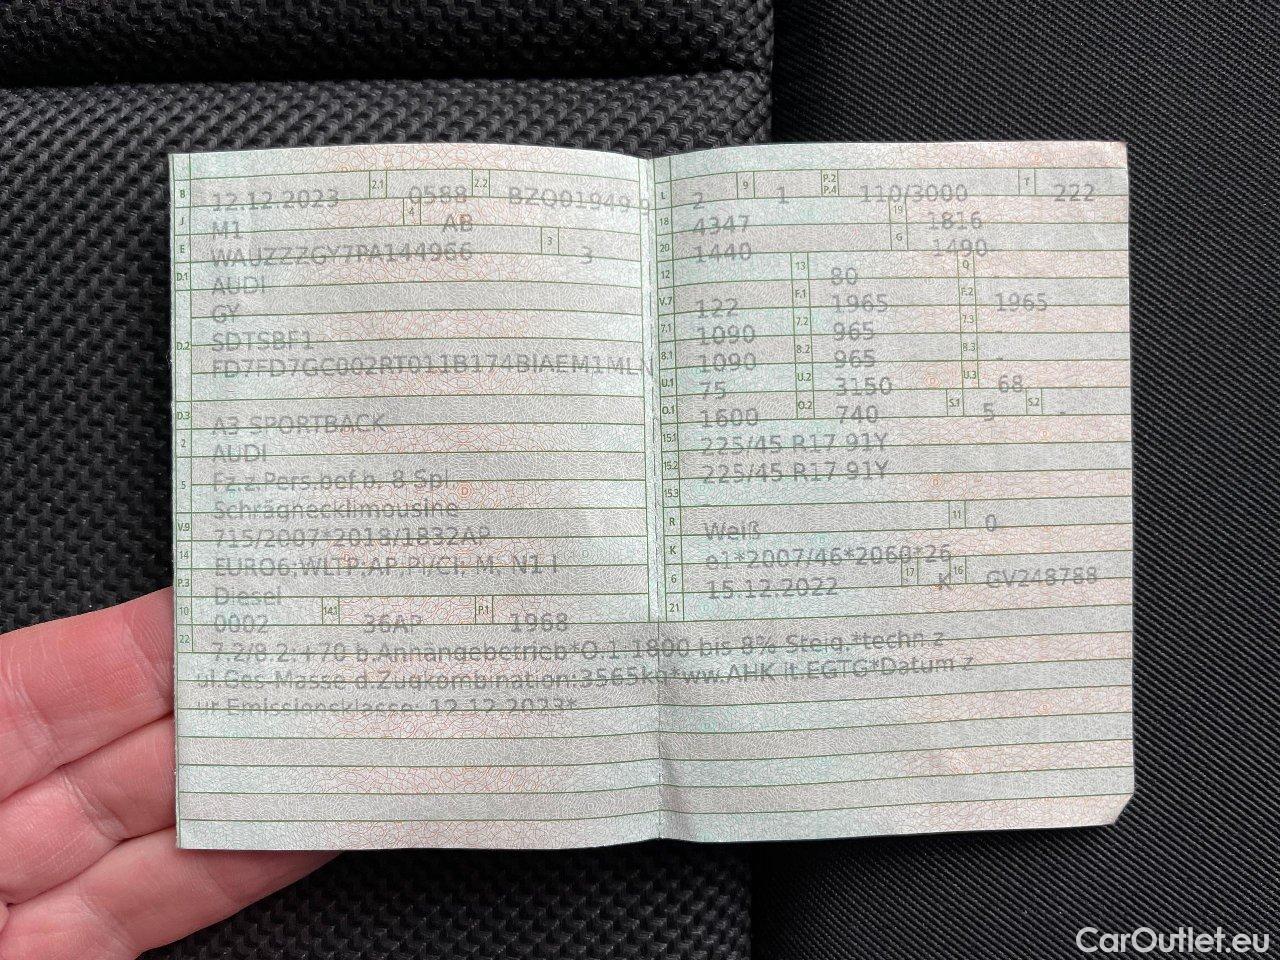 B 12.12.2023 2.1 0588 2.2 BZQ01949 9
J M1 4 AB
E WAUZZZGY7PA144966 3 3
D.1 AUDI
GY
D.2 SDTSBF1
FD7FD7GC002RT011B174BIAEM1MLN
D.3 A3 SPORTBACK
2 AUDI
5 Fz.z.Pers.bef.b. 8 Spl.
Schräghecklimousine
V.9 715/2007*2018/1832AP
14 EURO6;WLTP;AP;PI/CI; M, N1 I
P.3 Diesel
10 0002 14.1 36AP P.1 1968
L 2 9 1 P.2 P.4 110/3000 T 222
18 4347 19 1816
20 1440 G 1490
12 13 80 Q -
V.7 122 F.1 1965 F.2 1965
7.1 1090 7.2 965 7.3 -
8.1 1090 8.2 965 8.3 -
U.1 75 U.2 3150 U.3 68
O.1 1600 O.2 740 S.1 5 S.2 -
15.1 225/45 R17 91Y
15.2 225/45 R17 91Y
15.3 -
R Weiß 11 0
K e1*2007/46*2060*26
6 15.12.2022 17 K 16 GV248788
21
22 7.2/8.2: +70 b.Anhängebetrieb*O.1 1800 bis 8% Steig.*techn.z
ul.Ges.Masse d.Zugkombination:3565kg*ww.AHK lt.EGTG*Datum z
ur Emissionsklasse: 12.12.2023*
CarOutlet.eu